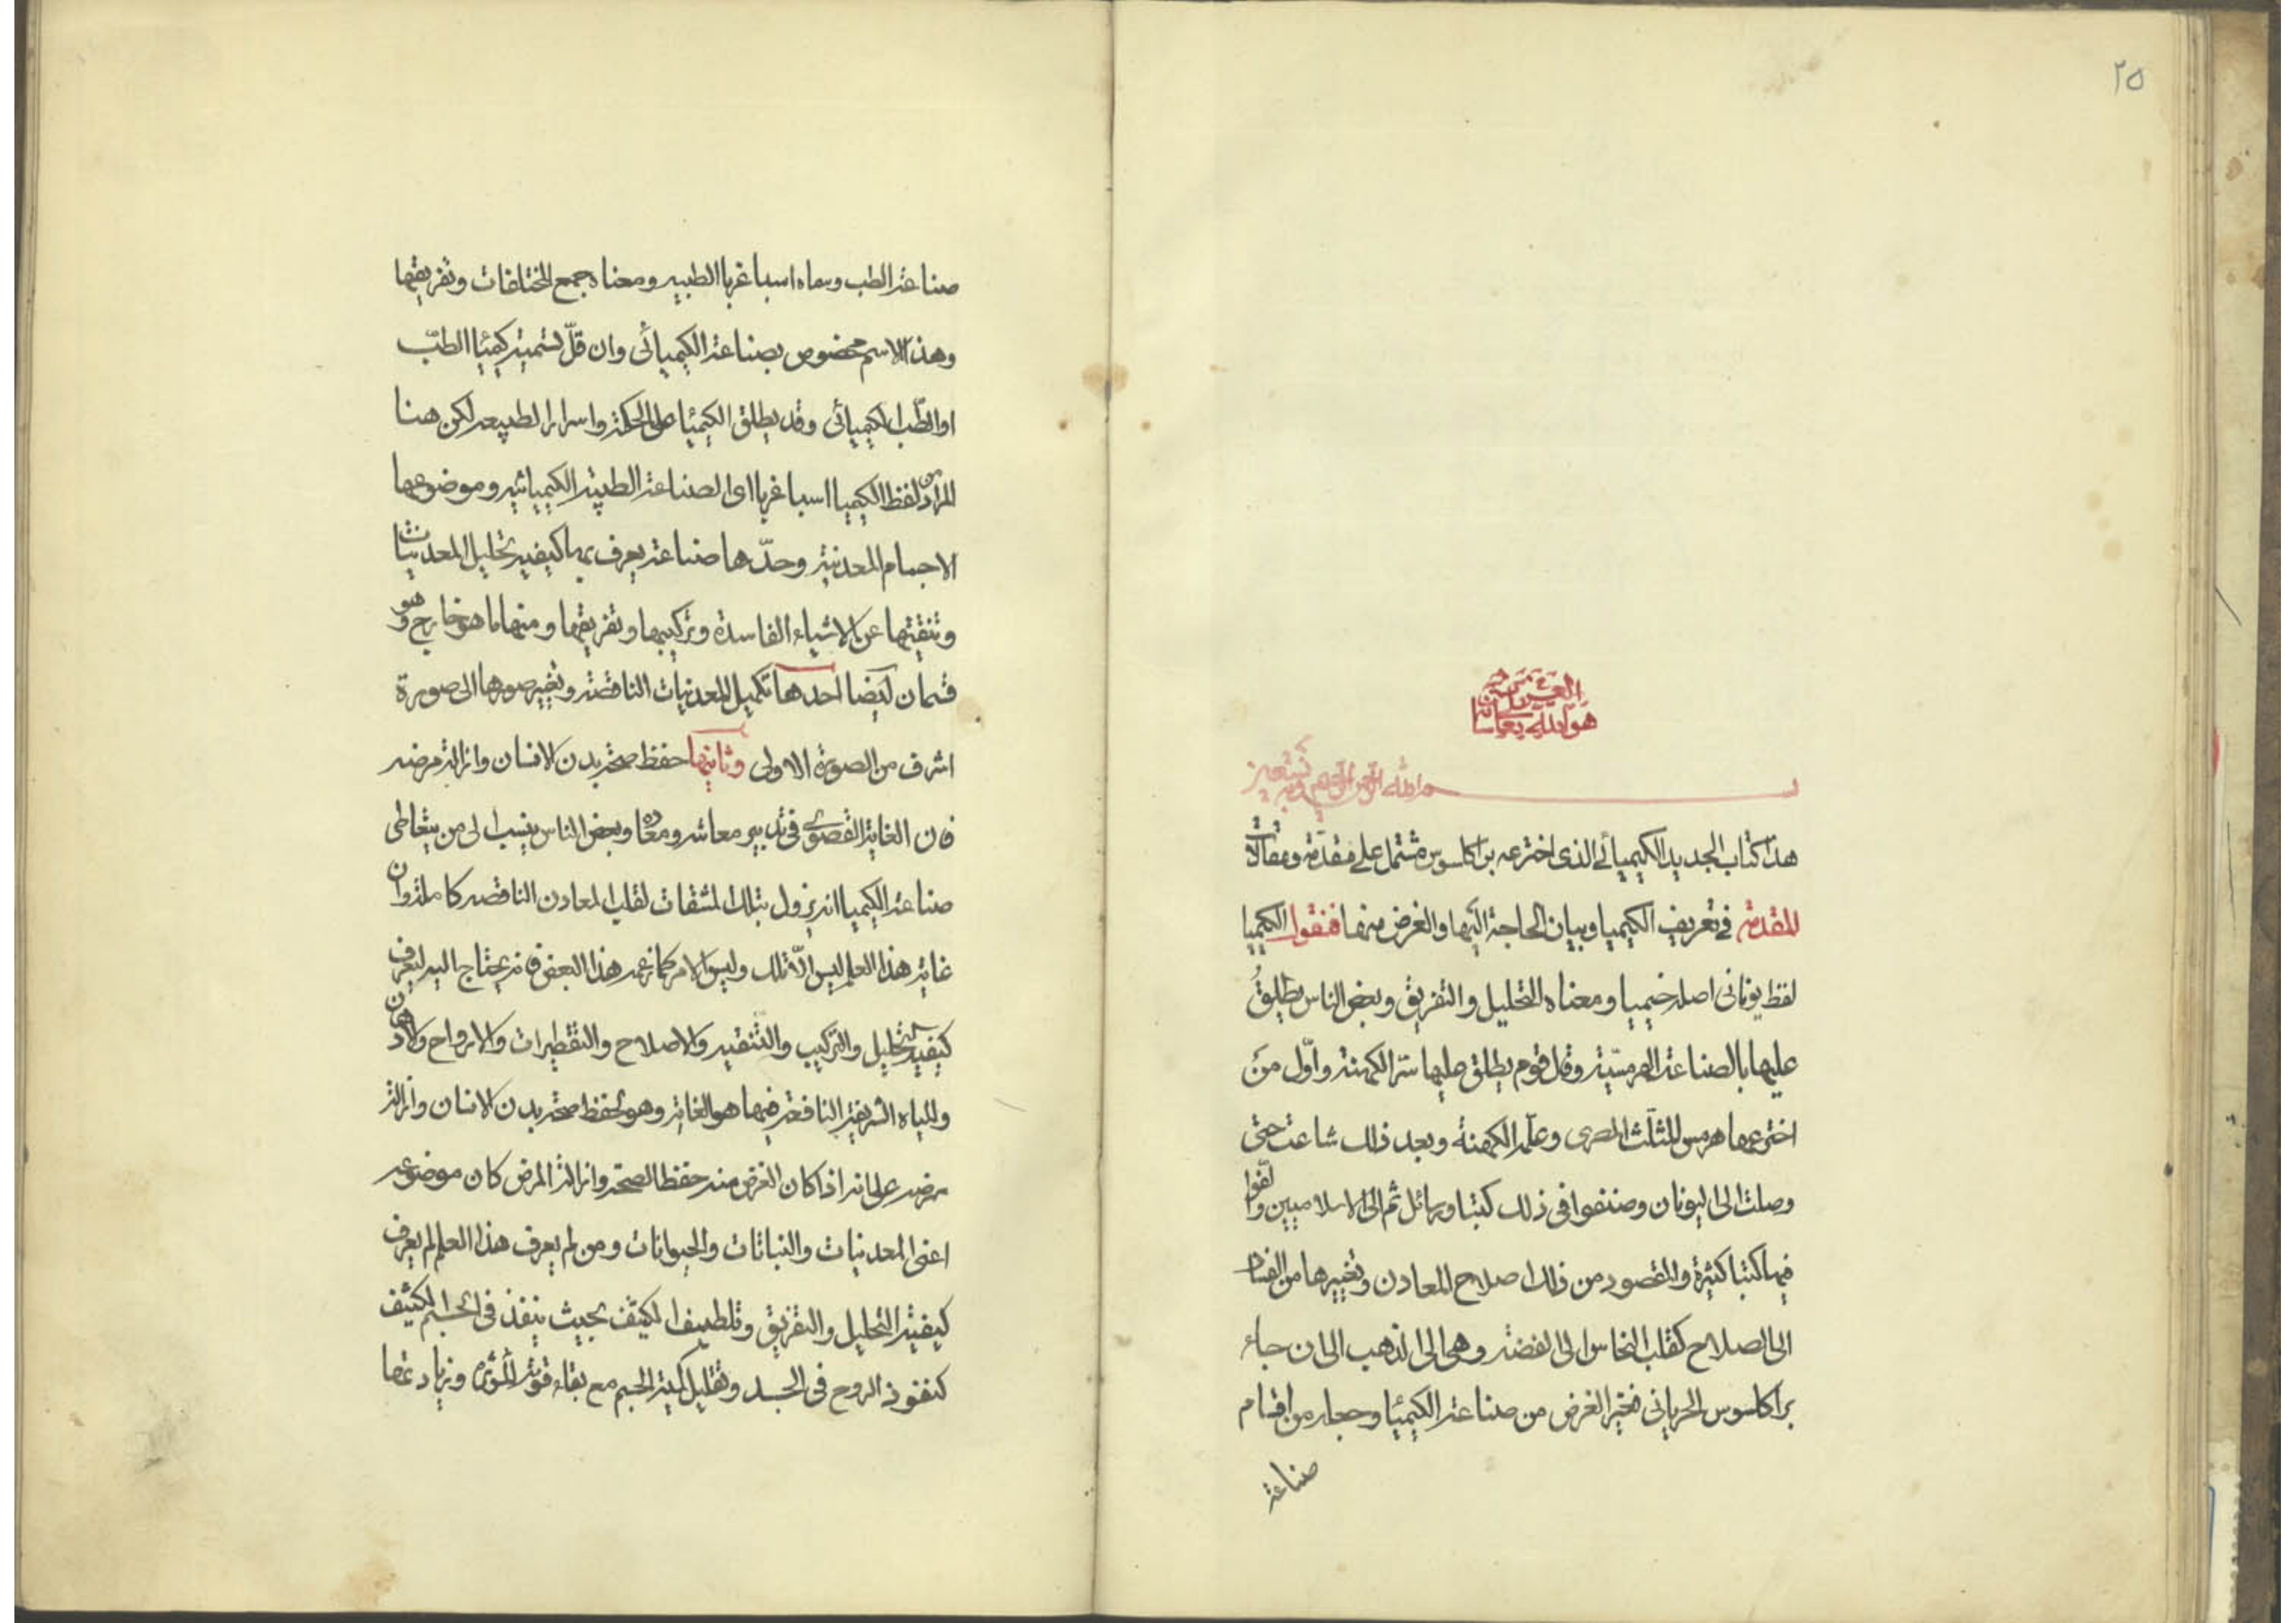 ٢٥
هو الله تعالى شانه العزيز
بسم الله الرحمن الرحيم وبه نستعين
هذا كتاب الجديد الكيميائي الذى اخترعه براكلسوس مشتمل على مقدمة ومقالات
المقدمة فى تعريف الكيميا وبيان الحاجة اليها والغرض منها فنقول الكيميا
لفظ يونانى اصله خيميا ومعناه التحليل والتفريق وبعض الناس يطلق
عليها بالصناعة الهرمسية وقل قوم يطلق عليها سر الكهنة واول من
اخترعها هرمس المثلث المصرى وعلمه الكهنة وبعد ذلك شاعت حتى
وصلت الى اليونان وصنفوا فى ذلك كتبا ورسائل ثم الى الاسلاميين والفوا
فيها كتبا كثيرة والمقصود من ذلك اصلاح المعادن وتغييرها من الفساد
الى الصلاح كقلب النحاس الى الفضة وهى الى الذهب الى ان جاء
براكلسوس الجرمانى فغير الغرض من صناعة الكيميا وجعله من اقسام
صناعة
صناعة الطب وسماه اسباغريا الطبيه ومعناه جمع المختلفات وتفريقها
وهذا الاسم مخصوص بصناعة الكيميائى وان قل تسميته كيميا الطب
او الطب الكيميائى وقد يطلق الكيميا على الحكمة واسرار الطبيعه لكن هنا
المراد من لفظ الكيميا اسباغريا اى الصناعة الطبية الكيميائيه وموضوعها
الاجسام المعدنية وحدّها صناعة يعرف بها كيفيه تحليل المعدنيات
وتنقيتها عن الاشياء الفاسدة وتركيبها وتفريقها ومنها ما هو خارج وهو
قسمان ايضا احدها تكميل المعدنيات الناقصة وتغيير صورها الى صورة
اشرف من الصورة الاولى وثانيها حفظ صحة بدن الانسان وازالة مرضه
فان الغاية القصوى فى تدبير معاشه ومعاده وبعض الناس ينسب الى من يتعاطى
صناعة الكيميا انه يزول بتلك المشقات لقلب المعادن الناقصه كاملة وان
غاية هذا العلم ليس الّا تلك وليس الامر كما زعمه هذا البعض فانه يحتاج اليه ليعرف
كيفية التحليل والتركيب والتنقيه والاصلاح والتقطيرات والارواح والادهان
والمياه الشريفة النافعة فيها هو الغاية وهو لحفظ صحة بدن الانسان وازالة
مرضه على انه اذا كان الغرض منه حفظ الصحة وازالة المرض كان موضوعه
اعنى المعدنيات والنباتات والحيوانات ومن لم يعرف هذا العلم لم يعرف
كيفية التحليل والتفريق وتلطيف الكثيف بحيث ينفذ فى الجسم الكثيف
كنفوذ الروح فى الجسد وتقليل كمية الجسم مع بقاء قوته المؤثرة وزيادتها